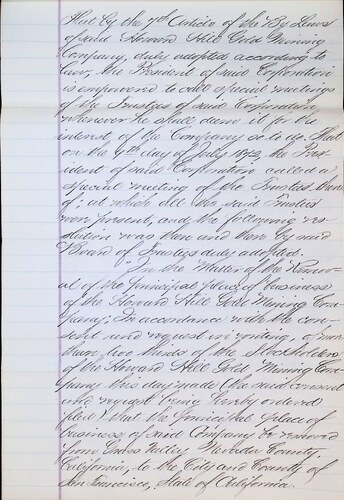 That by the 7th Article of the By Laws
of said Howard Hill Gold Mining
Company, duly adopted according to
law, the President of said Corporation
is empowered to call special meetings
of the Trustees of said Corporation
whenever he shall deem it for the
interest of the Company so to do. That
on the 9th day of July 1872, the Pres-
ident of said Corporation called a
special meeting of the Trustees there-
of; at which all the said Trustees
were present, and the following res-
olution was then and there by said
Board of Trustees duly adopted.
"In the Matter of the Remov-
al of the principal place of business
of the Howard Hill Gold Mining Com-
pany; In accordance with the con-
sent and request in writing, of more
than two thirds of the Stockholders
of the Howard Hill Gold Mining Com-
pany this day made (the said consent
and request being hereby ordered
filed) that the principal place of
business of said Company be removed
from Grass Valley Nevada County
California, to the City and County of
San Francisco, State of California.